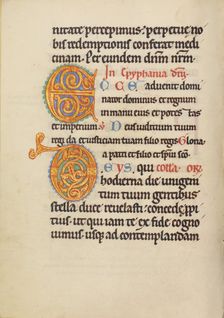 nitate percepimus: perpetue no
bis redemptionis conferat medi
cinam. Per eundem dnm nrm.
In Epyphania dni
ECCE advenit domi
nator dominus et regnum
in manu eius et potestas
et imperium Ps Deus iudicium tuum
regi da et iusticiam tuam filio regis Gloria
patri et filio et spu sco
DEVS, qui colla. or
hodierna die unigeni
tum tuum gentibus
stella duce revelasti: concede ppi
tius. ut qui iam te ex fide cogno
uimus. usq; ad contemplandam